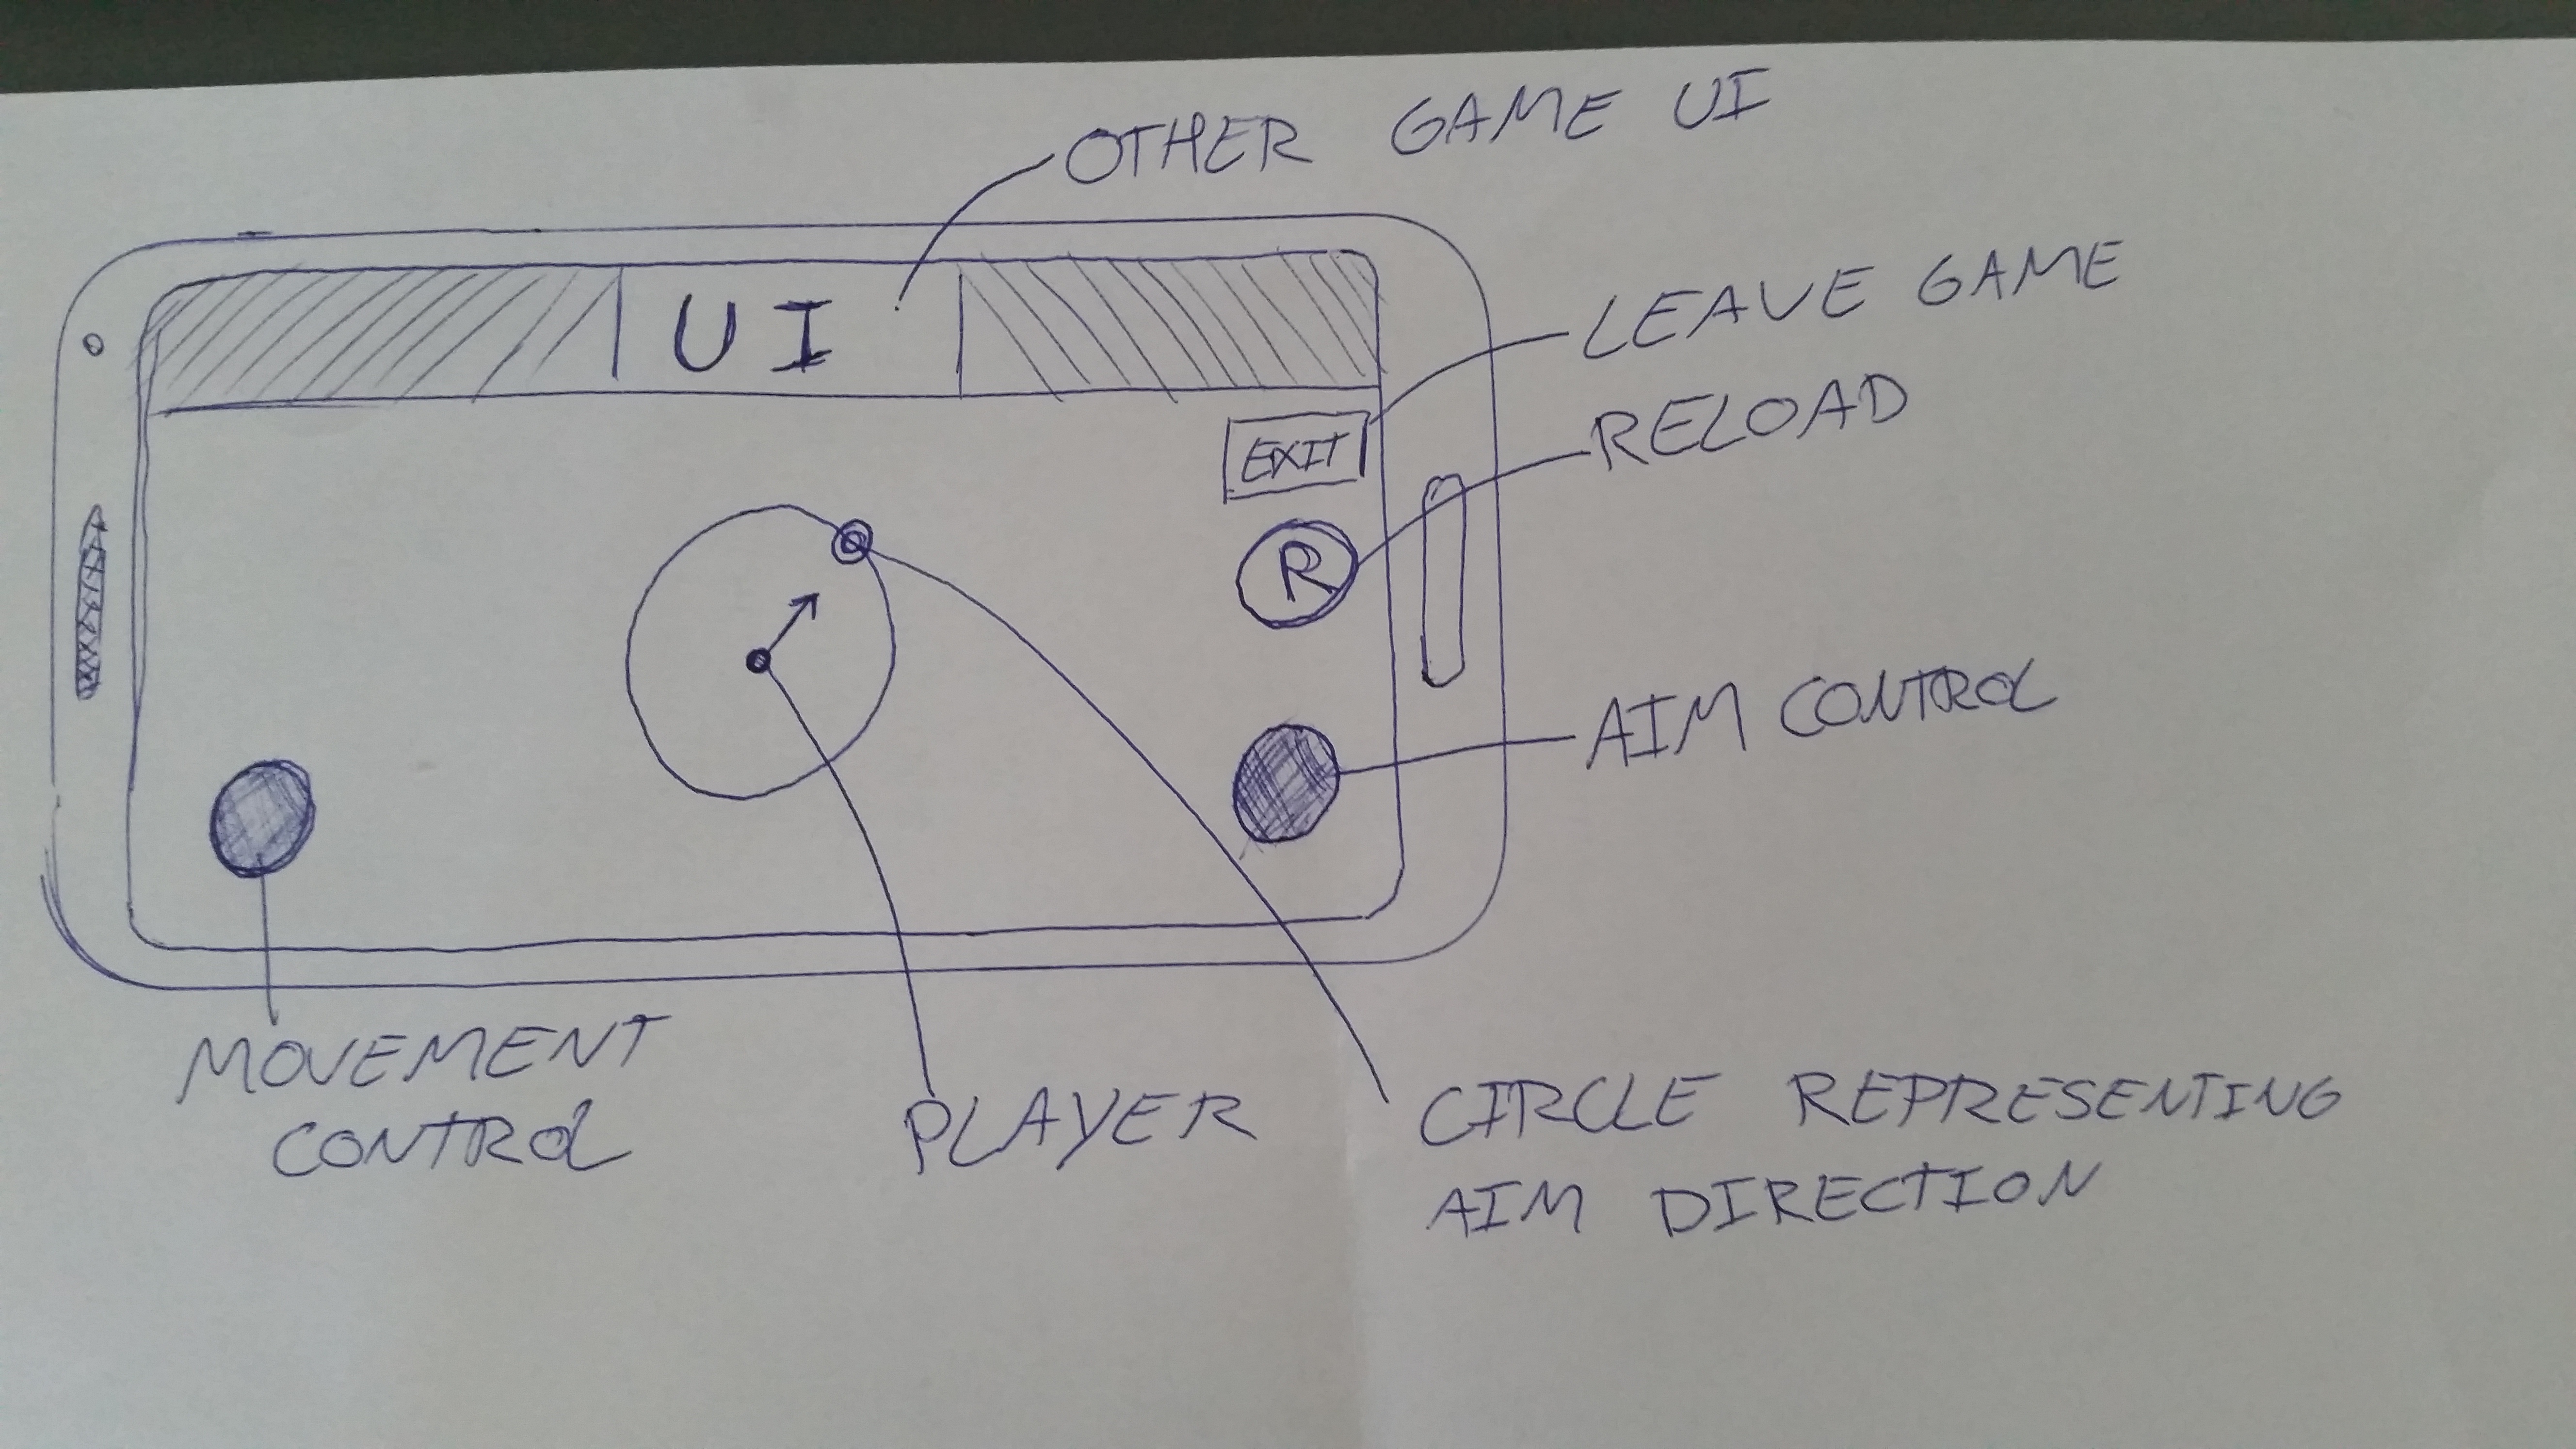 OTHER GAME UI
UI
LEAVE GAME
EXIT
RELOAD
R
AIM CONTROL
MOVEMENT
CONTROL
PLAYER
CIRCLE REPRESENTING
AIM DIRECTION